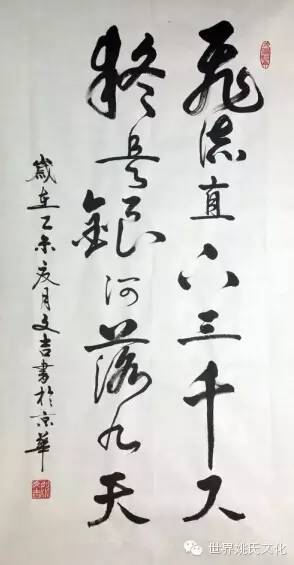 飛流直下三千尺
疑是銀河落九天
歲在乙未夏月文吉書於京華
世界姚氏文化